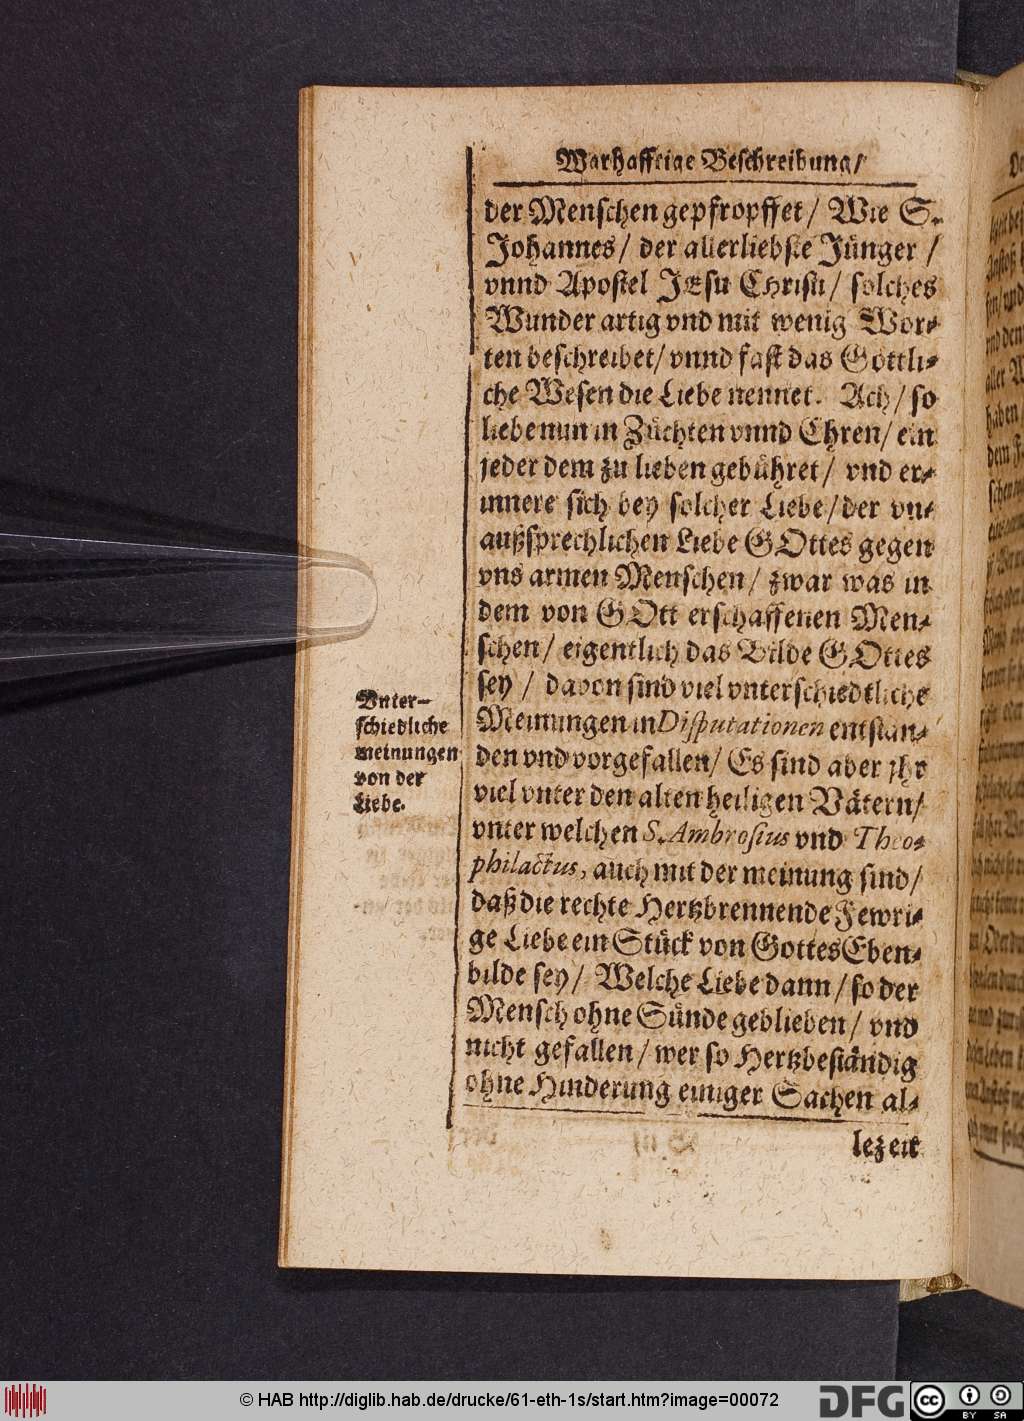 Warhafftige Beschreibung/
der Menschen gepfropffet/ Wie S.
Johannes/ der allerliebste Jünger /
vnnd Apostel JEsu Christi/ solches
Wunder artig vnd mit wenig Wor-
ten beschreibet/ vnnd fast das Göttli-
che Wesen die Liebe nennet. Ach/ so
liebe nun in Züchten vnnd Ehren/ ein
jeder dem zu lieben gebühret/ vnd er-
innere sich bey solcher Liebe/ der vn-
außsprechlichen Liebe GOttes gegen
vns armen Menschen/ zwar was in
dem von GOtt erschaffenen Men-
schen/ eigentlich das Bilde GOttes
sey / davon sind viel vnterschiedtliche
Meinungen in Disputationen entstan-
den vnd vorgefallen/ Es sind aber jhr
viel vnter den alten heiligen Vätern/
vnter welchen S. Ambrosius vnd Theo-
philactus, auch mit der meinung sind/
daß die rechte Hertzbrennende Fewri-
ge Liebe ein Stück von Gottes Eben-
bilde sey/ Welche Liebe dann/ so der
Mensch ohne Sünde geblieben/ vnd
nicht gefallen/ wer so Hertzbeständig
ohne Hinderung einiger Sachen al-
lezeit
Vnter-
schiedliche
meinungen
von der
Liebe.
© HAB http://diglib.hab.de/drucke/61-eth-1s/start.htm?image=00072
DFG
cc
BY SA